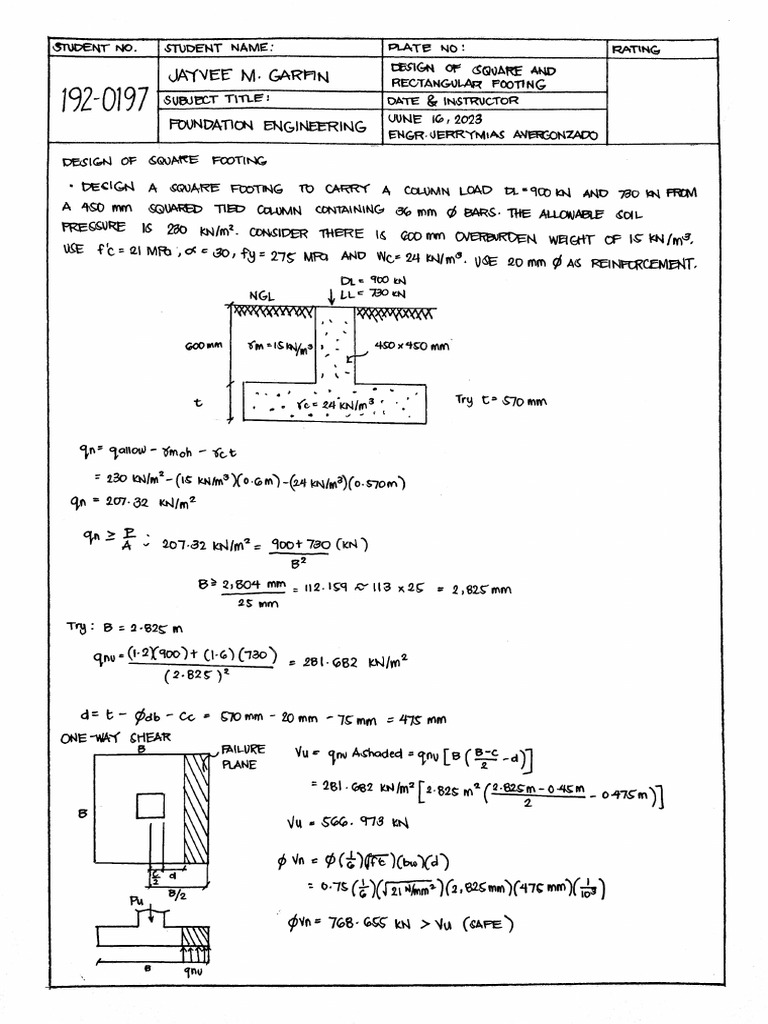 STUDENT NO.
STUDENT NAME:
PLATE NO:
RATING
192-0197
JAYVEE M. GARFIN
DESIGN OF SQUARE AND
RECTANGULAR FOOTING
SUBJECT TITLE:
DATE & INSTRUCTOR
FOUNDATION ENGINEERING
JUNE 16, 2023
ENGR. JERRYMIAS AVERGONZADO
DESIGN OF SQUARE FOOTING
• DESIGN A SQUARE FOOTING TO CARRY A COLUMN LOAD DL=900 KN AND 730 KN FROM
A 450 mm SQUARED TIED COLUMN CONTAINING 36 mm Ø BARS. THE ALLOWABLE SOIL
PRESSURE IS 230 KN/m². CONSIDER THERE IS 600 mm OVERBURDEN WEIGHT OF 15 KN/m³.
USE f'c = 21 MPa, α = 30, fy = 275 MPa AND Wc = 24 KN/m³. USE 20 mm Ø AS REINFORCEMENT.
DL = 900 KN
LL = 730 KN
NGL
600 mm
γm = 15 KN/m³
450 x 450 mm
t
γc = 24 KN/m³
Try t = 570 mm
qn = qallow - γmoh - γct
= 230 KN/m² - (15 KN/m³)(0.6m) - (24 KN/m³)(0.570m)
qn = 207.32 KN/m²
qn ≥ P/A ∴ 207.32 KN/m² = 900 + 730 (KN) / B²
B ≥ 2,804 mm / 25 mm = 112.159 ≈ 113 x 25 = 2,825 mm
Try: B = 2.825 m
qnu = (1.2)(900) + (1.6)(730) / (2.825)² = 281.682 KN/m²
d = t - Ødb - Cc = 570 mm - 20 mm - 75 mm = 475 mm
ONE-WAY SHEAR
B
FAILURE
PLANE
Vu = qnu Ashaded = qnu [B (B-C/2 - d)]
= 281.682 KN/m² [2.825 m² (2.825m - 0.45m / 2 - 0.475m)]
B
Vu = 566.973 KN
C/2
d
B/2
Ø Vn = Ø (1/6)(√f'c)(bw)(d)
= 0.75 (1/6)(√21 N/mm²)(2,825 mm)(475 mm)(1/10³)
Pu
ØVn = 768.655 KN > Vu (SAFE)
B
qnu